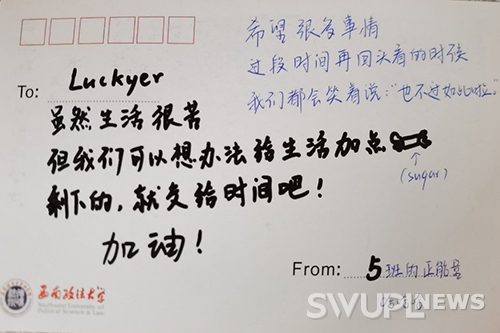 希望很多事情
过段时间再回头看的时候
我们都会笑着说："也不过如此啦。"
To: Luckyer
虽然生活很苦
但我们可以想办法给生活加点
(sugar)
剩下的，就交给时间吧！
加油！
From: 5班的正能量
西南政法大学
Southwest University of
Political Science & Law
SWUPL NEWS